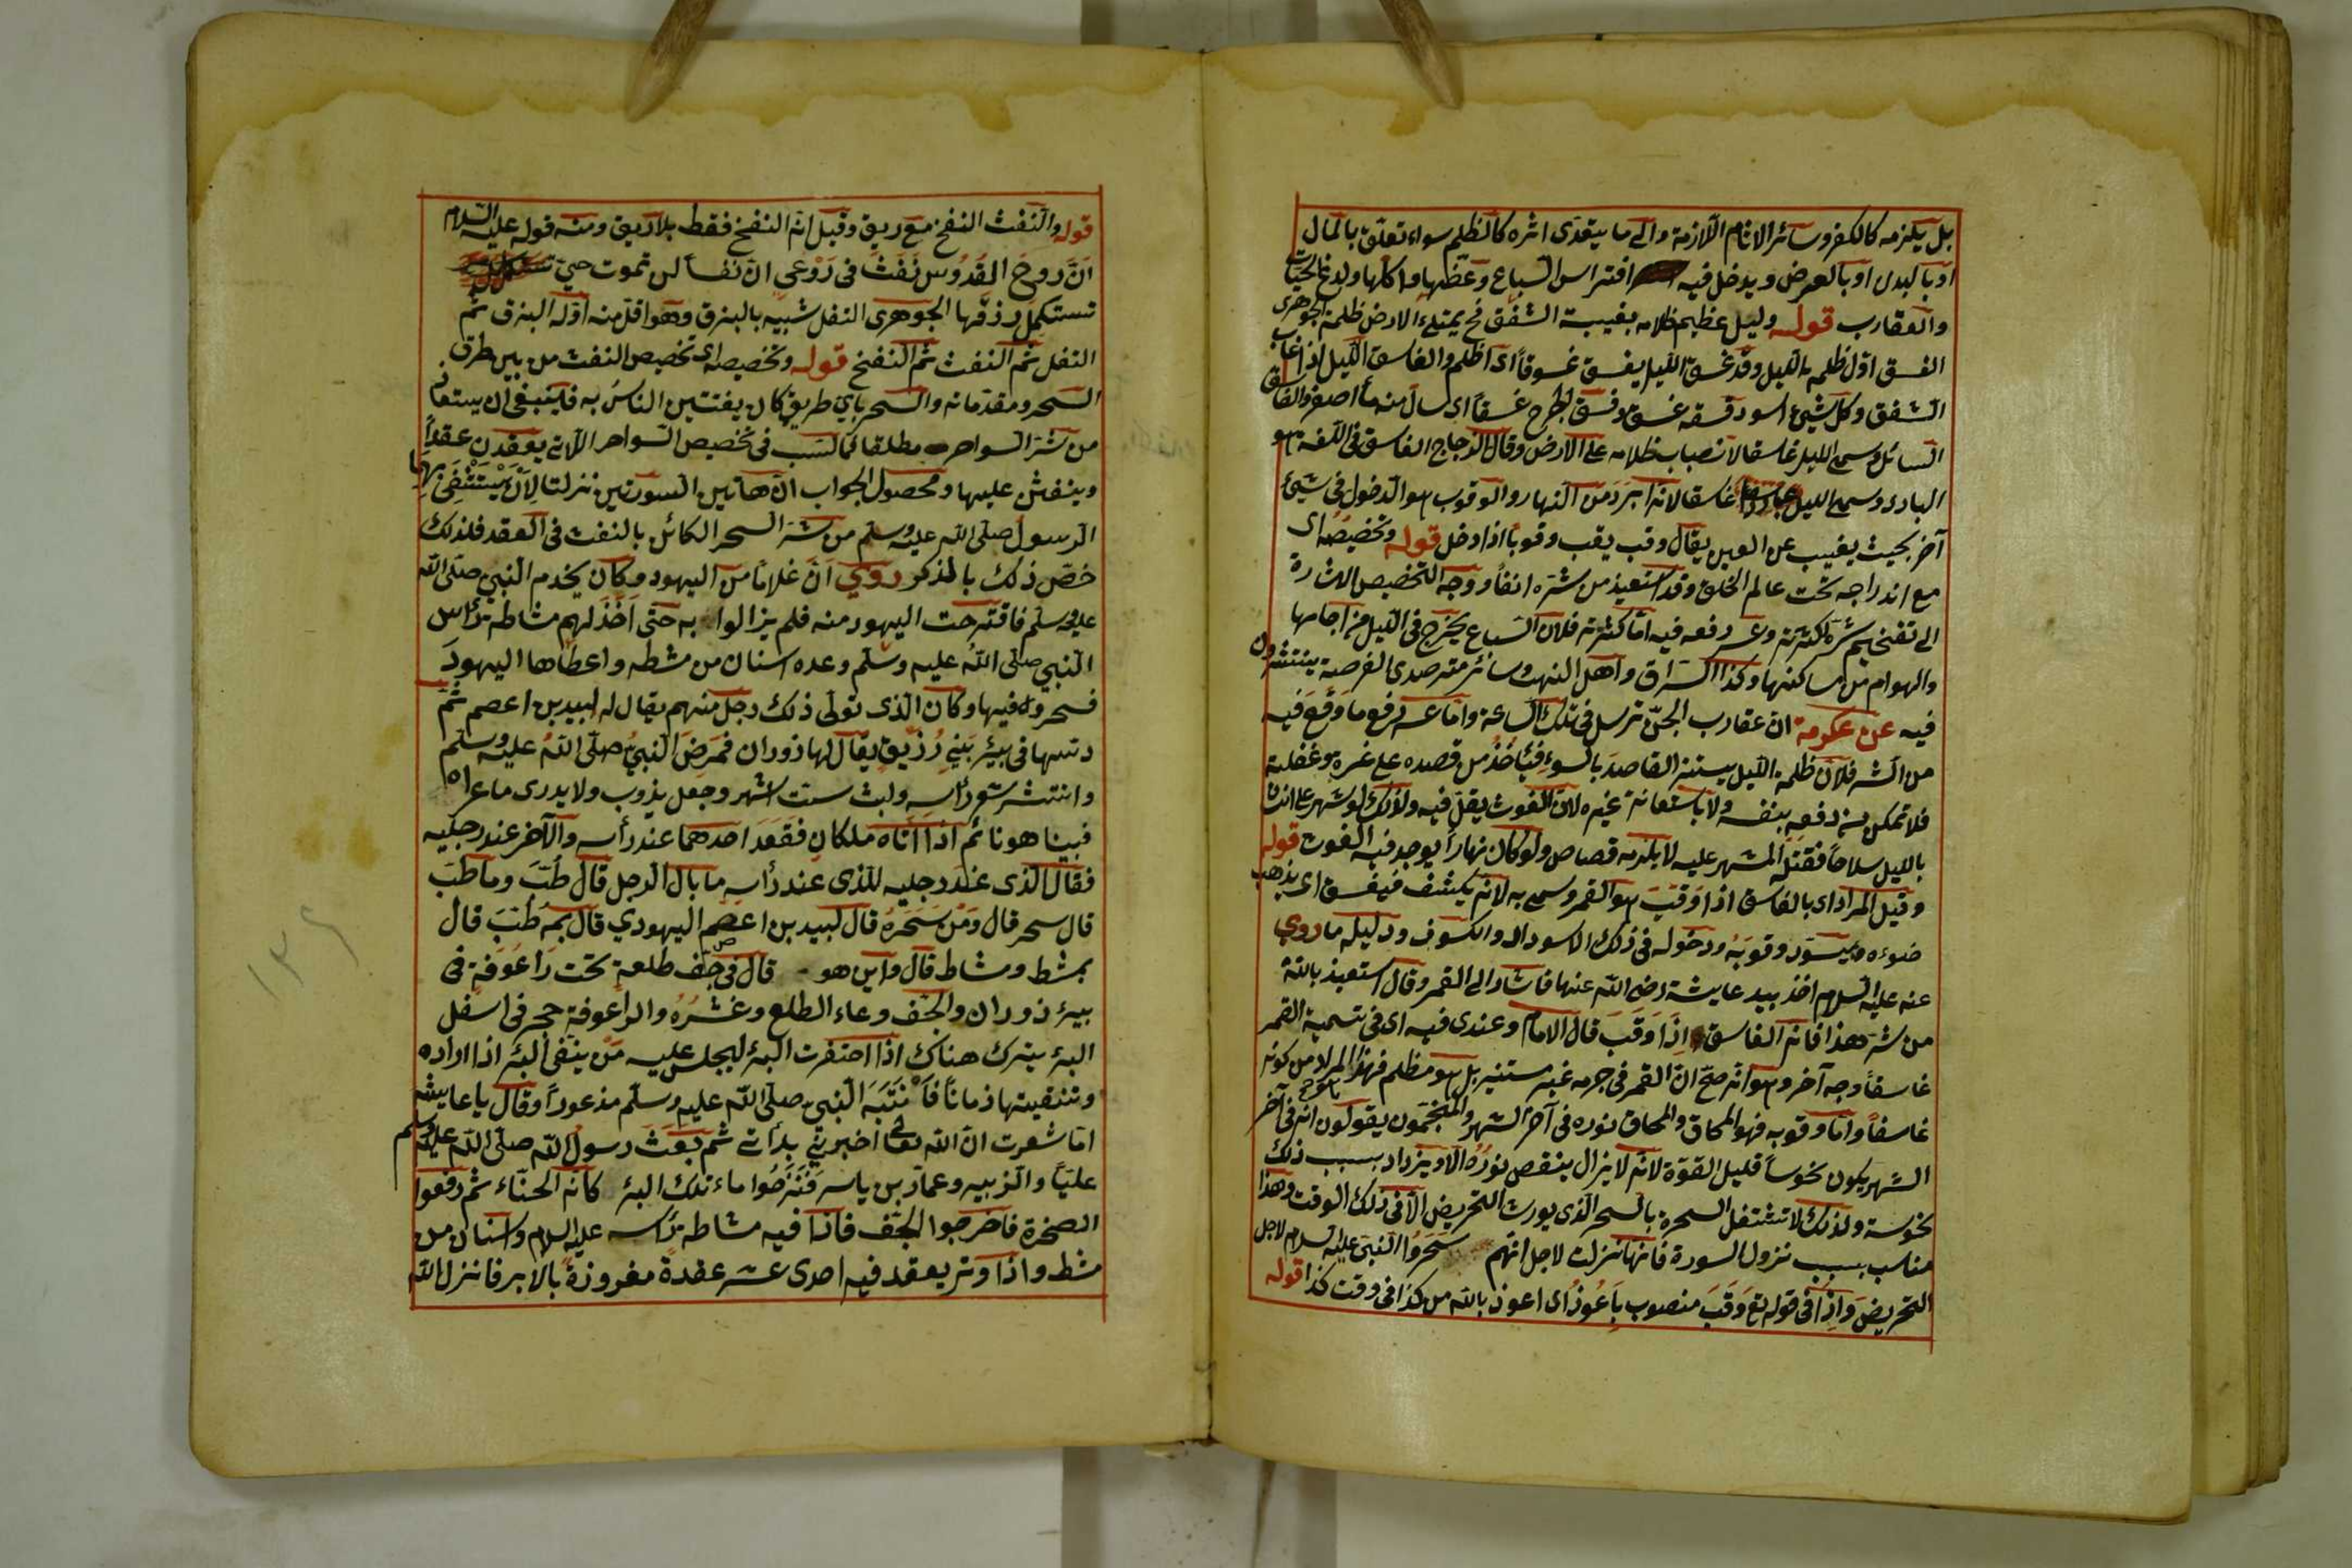 بل يلزمه كالكفر وسائر الاثام اللازمة والى ما يتعدى اثره كالظلم سواء تعلق بالمال
او بالبدن او بالعرض ويدخل فيه افتراس السباع وعضها واكلها ولدغ الحيات
والعقارب قوله وليل عظيم ظلامه بغيبة الشفق فح يمتلئ الارض ظلمة الجوهرى
الغسق اول ظلمة الليل وقد غسق الليل يغسق غسوقاً اى اظلم والغاسق الليل اذا غاب
الشفق وكل شيئ اسود غسق وغسق الجرح غسقاً اى سال منه ماء اصفر والغاسق
السائل وسمى الليل غاسقا لانصباب ظلامه على الارض وقال الزجاج الغاسق فى اللغة هو
البارد وسمى الليل غاسقا لانه ابرد من النهار والوقوب هو الدخول فى شيئ
آخر بحيث يغيب عن العين يقال وقب يقب وقوباً اذا دخل قوله وتخصيصه اى
مع اندراجه تحت عالم الخلق وقد استعيذ من شره انفاً ووجه التخصيص الاشارة
الى تفخيم شره لكثرته وعسر دفعه فيه اما كثرته فلان السباع يخرج فى الليل من اجامها
والهوام من مساكنها وكذا السراق واهل النهب وسائر مترصدى الفرصة ينتشرون
فيه عن عكرمة ان عقارب الجن ترسل فى تلك الساعة واما عسر دفع ما وقع فيه
من الشر فلان ظلمة الليل يستر القاصد بالسوء فيأخذ من قصده على غرة وغفلة
فلا تمكن من دفعه بنفسه ولا باستعانة غيره لان الغوث يقل فيه ولذلك لو شهر على انسان
بالليل سلاحاً فقتله المشهر عليه لا يلزمه قصاص ولو كان نهاراً يوجد فيه الغوث قوله
وقيل المراد اى بالغاسق اذا وقب هو القمر وسمى به لانه يكسف فيغسق اى يذهب
ضوءه ويسود وقوبه ودخوله فى ذلك الاسوداد والكسوف ودليله ما روي
عنه عليه السلام اخذ بيد عايشة رضى الله عنها فاشار الى القمر وقال استعيذ بالله
من شر هذا فانه الغاسق اِذَا وَقَبَ قال الامام وعندى فيه اى فى تسمية القمر
غاسقاً وجه آخر وهو انه صح ان القمر فى جرمه غير مستنير بل هو مظلم فهذا المراد من كونه
غاسقاً واما وقوبه فهو المحاق والمحاق نوره فى آخر الشهر والمنجمون يقولون انه فى آخر
الشهر يكون نحوساً قليل القوة لانه لا يزال ينقص نوره الا ويزداد بسبب ذلك
نحوسة ولذلك لا تشتغل السحرة بالسحر الذى يورث التمريض الا فى ذلك الوقت وهذا
مناسب بسبب نزول السورة فانها نزلت لاجل انهم سَحَرُوا النبى عليه السلام لاجل
التمريض واذا فى قوله تع وَقَبَ منصوب باَعُوذُ اى اعوذ بالله من كذا فى وقت كذا قوله
قوله والنفث النفخ مع ريق وقيل انه النفخ فقط بلا ريق ومنه قوله عليه السلام
اَنّ روح القُدُوس نَفَثَ فى رَوْعى ان نفساً لن تموت حتى
تستكمل رزقها الجوهرى التفل شبيه بالبزق وهو اقل منه اوله البزق ثم
التفل ثم النفث ثم النفخ قوله وتخصيصه اى تخصيص النفث من بين طرق
السحر ومقدماته والسحر باى طريق كان يفتتين الناس به فينبغى ان يستعاذ
من شر السواحر مطلقا فما السبب فى تخصيص السواحر اللاتى يعقدن عقداً
وينفثن عليها ومحصول الجواب ان هاتين السورتين نزلتا لِاَنْ يَسْتَشْفَى بهما
الرسول صلى الله عليه وسلم من شر السحر الكائن بالنفث فى العقد فلذلك
خص ذلك بالذكر روي اَنّ غلاماً من اليهود وكان يخدم النبى صلى الله
عليه وسلم فاقترحت اليهود منه فلم يزالوا به حتى اَخَذَ لهم مشاطة رأس
النبي صلى الله عليه وسلم وعده اسنان من مشطه واعطاها اليهودَ
فسحروه فيها وكان الذى تولى ذلك رجل منهم يقال له لبيد بن اعصم ثم
دسها فى بيئر بَنِي رُزَيق يقال لها ذوران فمرضَ النبيُ صلى الله عليه وسلم
وانتشر شعر رأسه ولبث ستت اشهر وجعل يذوب ولا يدرى ما عراه
فبينا هو نائم اذا اتاه ملكان فقَعَدَ احدهما عند رأسه والآخر عند رجليه
فقال الذى عند رجليه للذى عند رأسه ما بال الرجل قال طُبَّ وما طب
قال سحر قال ومَنْ سَحَرَهُ قال لبيد بن اعصم اليهودي قال بمَ طُبّبَ قال
بمشط ومشاط قال واين هو قال فى جف طلعة تحت رَاعُوفة فى
بيئر ذوران والجف وعاء الطلع وغشرُهُ والراعوفة حجر فى اسفل
البئر يترك هناك اذا احتفرت البئر ليجلس عليه مَنْ يُنَقى البئر اذا اراده
وتنقيتها زماناً فَانْتَبَهَ النبى صلى الله عليه وسلم مذعوراً وقال يا عايشه
اما شعرت ان الله تعالى اخبرنى بدأتى ثم بَعَثَ رسول الله صلى الله عليه وسلم
علياً والزبير وعمار بن ياسر فَنَزَحُوا ماء تلك البئر كانه الحناء ثم رفعوا
الصخرة فاخرجوا الجف فاذا فيه مشاطة رأسه عليه السلام واسنان من
مشط واذا وتر يعقد فيه احدى عشر عقدةً مغروزةً بالابر فانزل الله
١٣٤